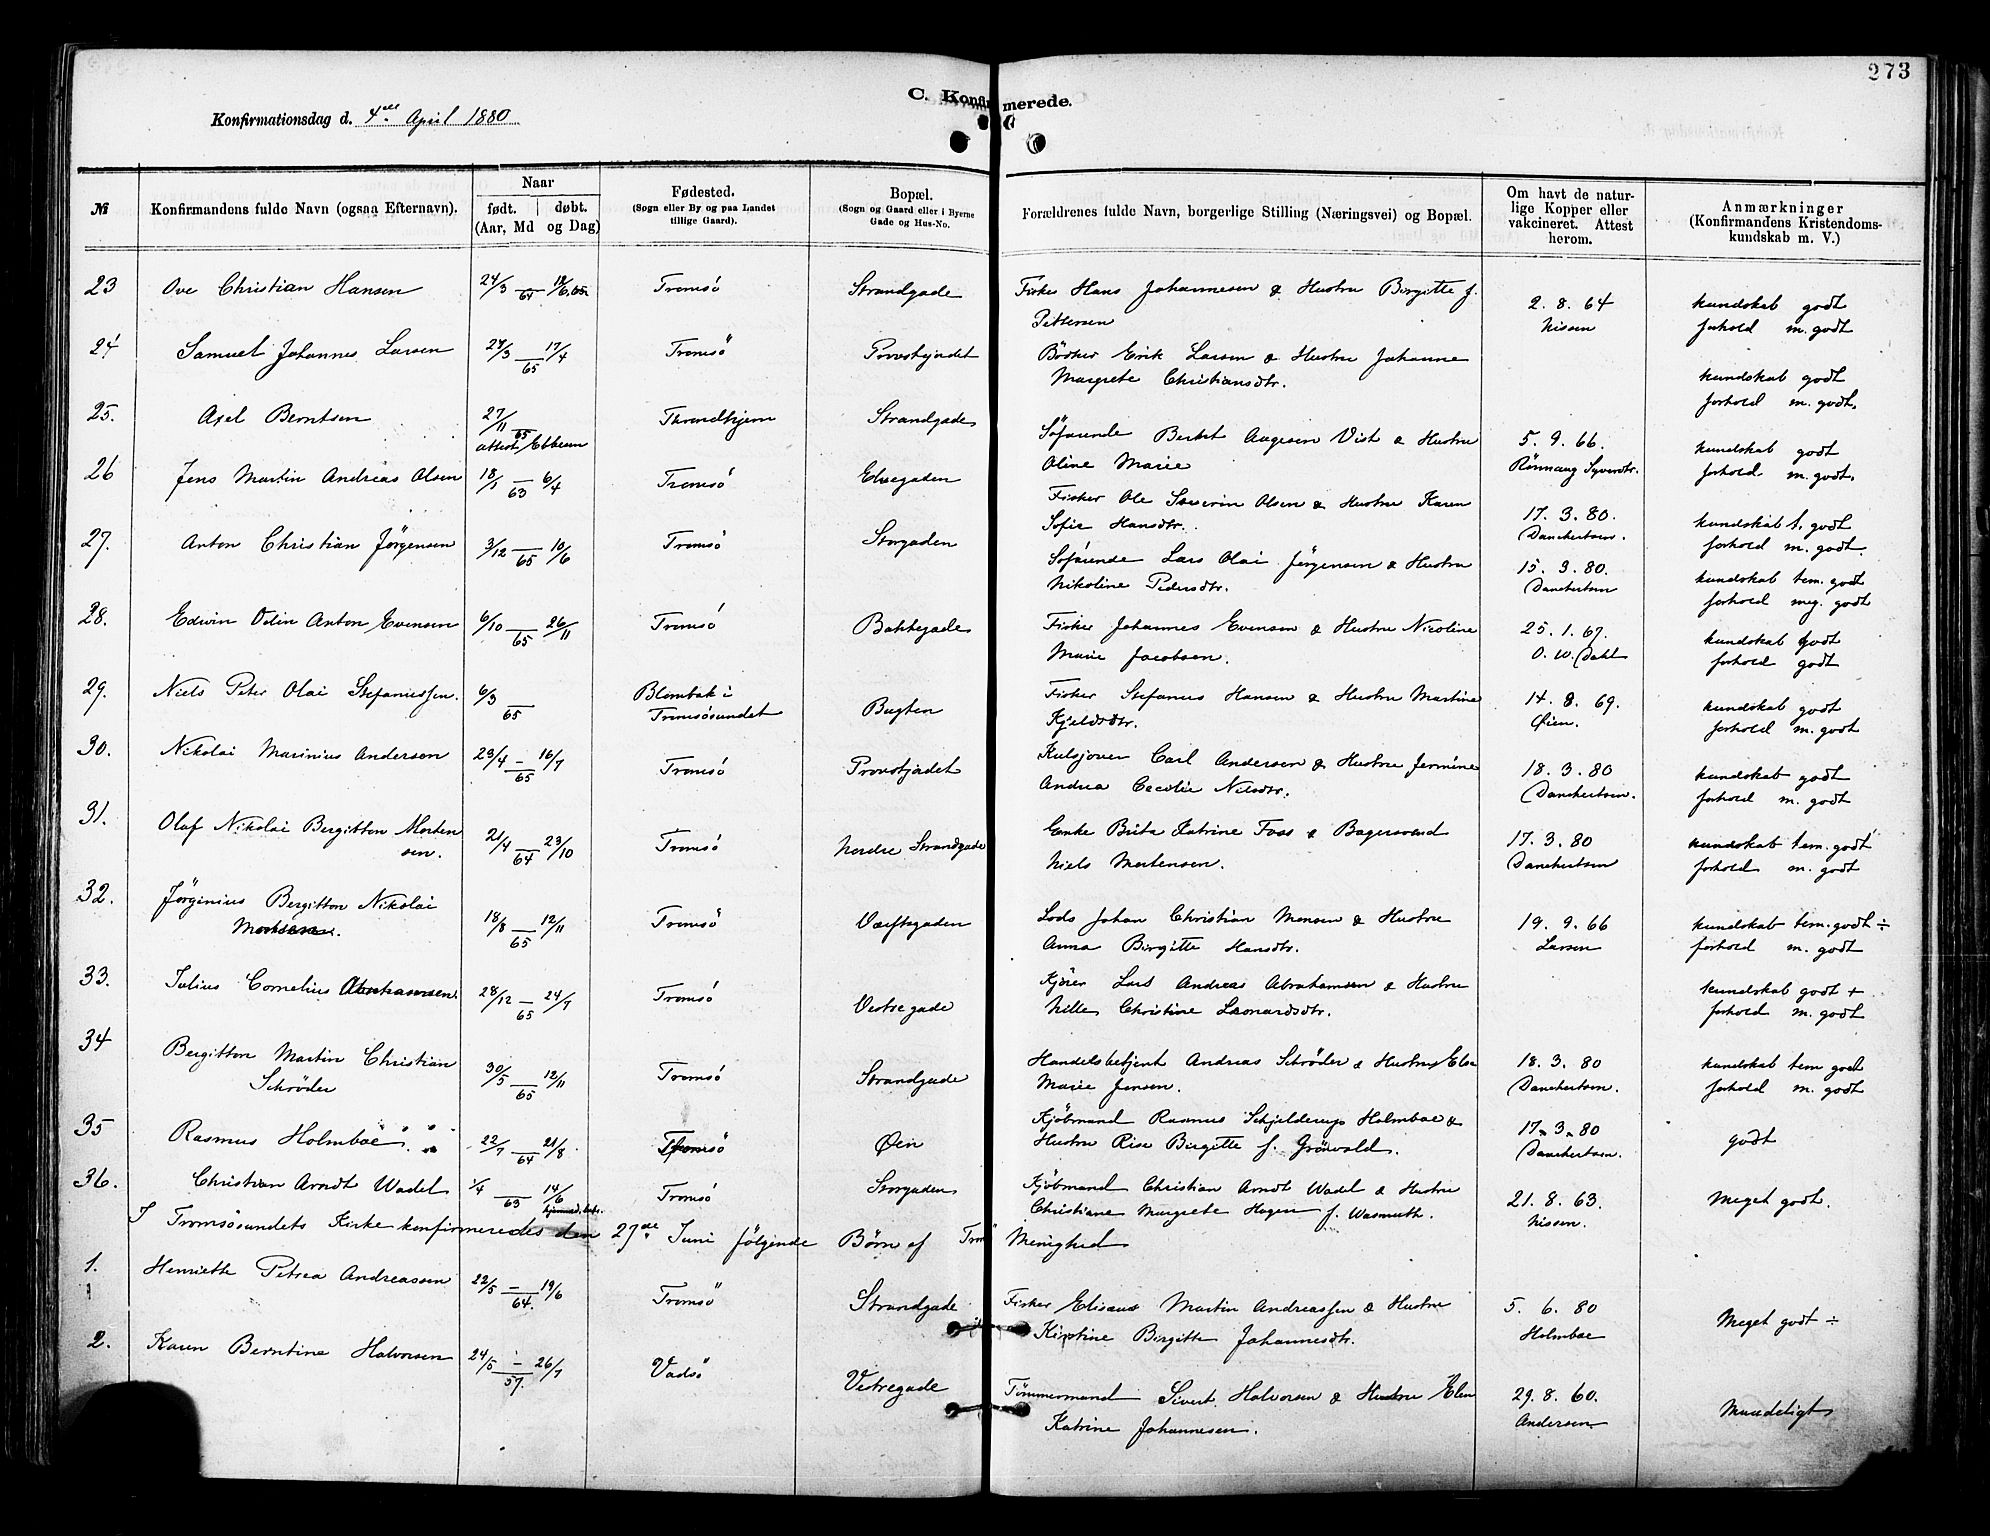 273
C. Konfirmerede.
Konfirmationsdag d. 4de April 1880
№
Konfirmandens fulde Navn (ogsaa Efternavn).
Naar
født. | døbt.
(Aar, Md og Dag)
Fødested.
(Sogn eller By og paa Landet
tillige Gaard).
Bopæl.
(Sogn og Gaard eller i Byerne
Gade og Hus-No.
Forældrenes fulde Navn, borgerlige Stilling (Næringsvei) og Bopæl.
Om havt de natur-
lige Kopper eller
vakcineret. Attest
herom.
Anmærkninger
(Konfirmandens Kristendoms-
kundskab m. V.)
23 Ove Christian Hansen 24/3 64 Tromsö Strandgade Fisker Hans Johannesen & Hustru Birgitte f. 2. 8. 64 kundskab godt
Pettersen Nissen forhold m. godt
24 Samuel Johannes Larsen 65 17/4 Tromsö Provstejadet Bödker Erik Larsen & Hustru Johanne kundskab godt
Margrete Christiansdtr. forhold m. godt.
25. Axel Berntsen 27/11 65 Throndhjem Strandgade Söfarende Berht Aagesen Vist & Hustru 5. 9. 66. kundskab godt
attest Ebbesen Oline Marie Rönnaug Syverdtr. forhold m. godt.
26 Jens Martin Andreas Olsen 18/1 63 6/4 Tromsö Elvegaden Fisker Ole Severin Olsen & Hustru Karen 17. 3. 80. kundskab t. godt
Sofie Hansdtr. Danchertsen. forhold m. godt.
27. Anton Christian Jörgensen 3/12 65 10/6 Tromsö Storgaden Söfarende Lars Olai Jörgensen & Hustru 15. 3. 80. kundskab tem. godt
Nikoline Pedersdtr. Danchertsen forhold meg. godt
28. Edwin Odin Anton Evensen 6/10 65 26/11 Tromsö Bakkegade Fisker Johannes Evensen & Hustru Nicoline 25. 1. 67. kundskab godt
Marie Jacobsen. O. W. Dahl forhold godt
29. Niels Peter Olai Stefanussen. 6/3 65 Blombak i Tromsösundet Bugten Fisker Stefanus Hansen & Hustru Martine 14. 8. 69. kundskab godt
Kjeldsdtr. Öien. forhold m. godt
30. Nikolai Marinius Andersen 23/4 65 16/7 Tromsö Provstjadet Kulsjouer Carl Andersen & Hustru Jermine 18. 3. 80 kundskab godt
Andrea Cecilie Nilsdtr. Danchertsen. forhold m. godt
31. Olaf Nikolai Bergitton Morten 21/4 64 23/10 Tromsö Nordre Strandgade Enke Brita Katrine Foss & Bagersvend 17. 3. 80 kundskab tem. godt
sen. Niels Mortensen. Danchertsen forhold m. godt
32. Jörginius Bergitton Nikolai 18/8 65 12/11 Tromsö Værftsgaden Lods Johan Christian Monsen & Hustru 19. 9. 66 kundskab tem. godt ÷
Anna Birgitte Hansdtr. Larsen forhold m. godt
33. Julius Cornelius Abrahamsen. 28/12 65 24/7 Tromsö Vestregade Kjörer Lars Andreas Abrahamsen & Hustru kundskab godt +
Nille Christine Leonardsdtr. forhold m. godt
34 Bergitton Martin Christian 30/5 65 12/11 Tromsö Strandgade Handelsbetjent Andreas Schröder & Hustru Else 18. 3. 80 kundskab tem godt
Schröder Marie Jensen. Danchertsen. forhold m. godt
35 Rasmus Holmboe 22/7 64 21/8 Tromsö Öen Kjöbmand Rasmus Schjelderup Holmboe & 17. 3. 80 godt
Hustru Rise Birgitte f. Grönvold. Danchertsen.
36. Christian Arndt Wadel 1/4 63 14/6 Tromsö Storgaden Kjöbmand Christian Arndt Wadel & Hustru 21. 8. 63. Meget godt.
Christiane Margrete Hagen f. Wasmuth. Nissen.
I Tromsösundets Kirke konfirmeredes den 27de Juni fölgende Börn af Menighed
1. Henriette Petrea Andreassen 22/5 64. 19/6 Tromsö Strandgade Fisker Elisæus Martin Andreassen & Hustru 5. 6. 80 Meget godt ÷
Kirstine Birgitte Johannesdtr. Holmboe
2. Karen Berntine Halvorsen 24/5 57. 26/7 Vadsö Vestregade Tömmermand Sivert Halvorsen & Hustru Elen 29. 8. 60. Maadeligt
Katrine Johannesen. Andersen